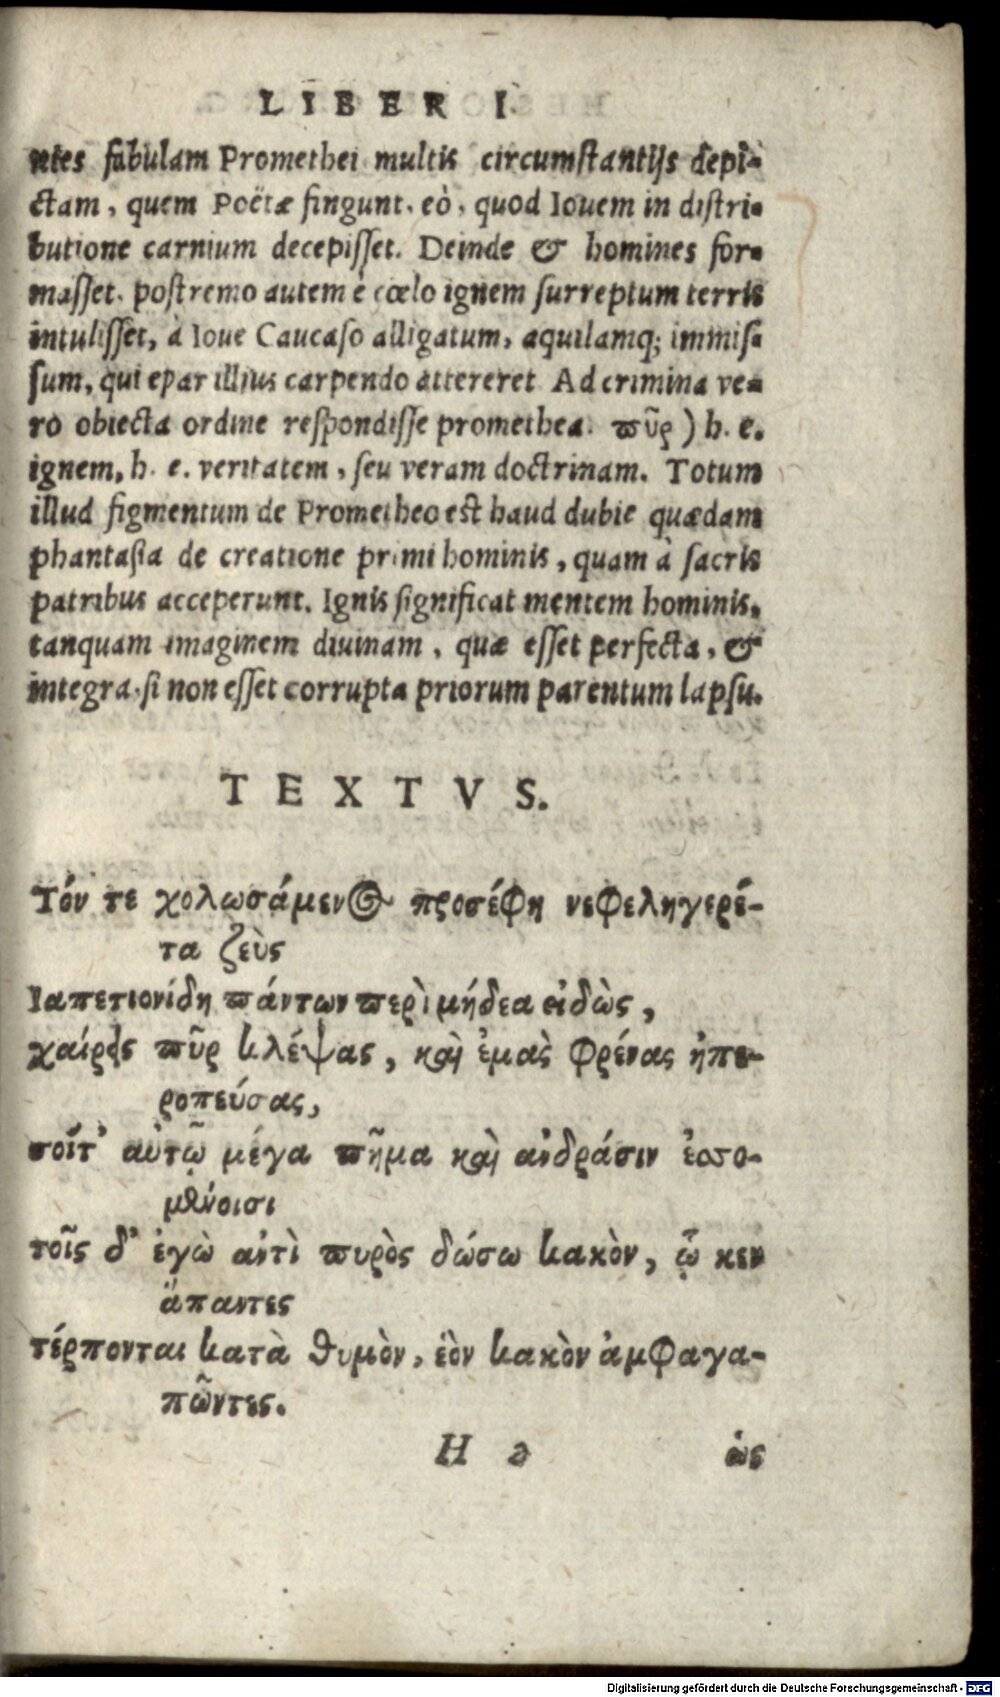 LIBER I.
ntes fabulam Promethei multis circumstantijs depi-
ctam, quem Poëtæ fingunt, eò, quod Iouem in distri-
butione carnium decepisset. Deinde & homines for-
masset. postremo autem è cœlo ignem surreptum terris
intulisset, à Ioue Caucaso alligatum, aquilamq; immis-
sum, qui epar illius carpendo attereret Ad crimina ve-
ro obiecta ordine respondisse promethea. πῦρ) h. e.
ignem, h. e. veritatem, seu veram doctrinam. Totum
illud figmentum de Prometheo est haud dubie quædam
phantasia de creatione primi hominis, quam à sacris
patribus acceperunt. Ignis significat mentem hominis,
tanquam imaginem diuinam, quæ esset perfecta, &
integra, si non esset corrupta priorum parentum lapsu.
TEXTVS.
Τόν τε χολωσάμενος προσέφη νεφεληγερέ-
τα ζεὺς
Ιαπετιονίδη πάντων περὶ μήδεα εἰδὼς,
χαίρεις πῦρ κλέψας, καὶ ἐμὰς φρένας ἠπε-
ροπεύσας,
σοίτ' αὐτῷ μέγα πῆμα καὶ ἀνδράσιν ἐσσο-
μένοισι
τοῖς δ' ἐγὼ ἀντὶ πυρὸς δώσω κακὸν, ᾧ κεν
ἅπαντες
τέρπονται κατὰ θυμὸν, ἑὸν κακὸν ἀμφαγα-
πῶντες.
H 2 ὡς
Digitalisierung gefördert durch die Deutsche Forschungsgemeinschaft - DFG